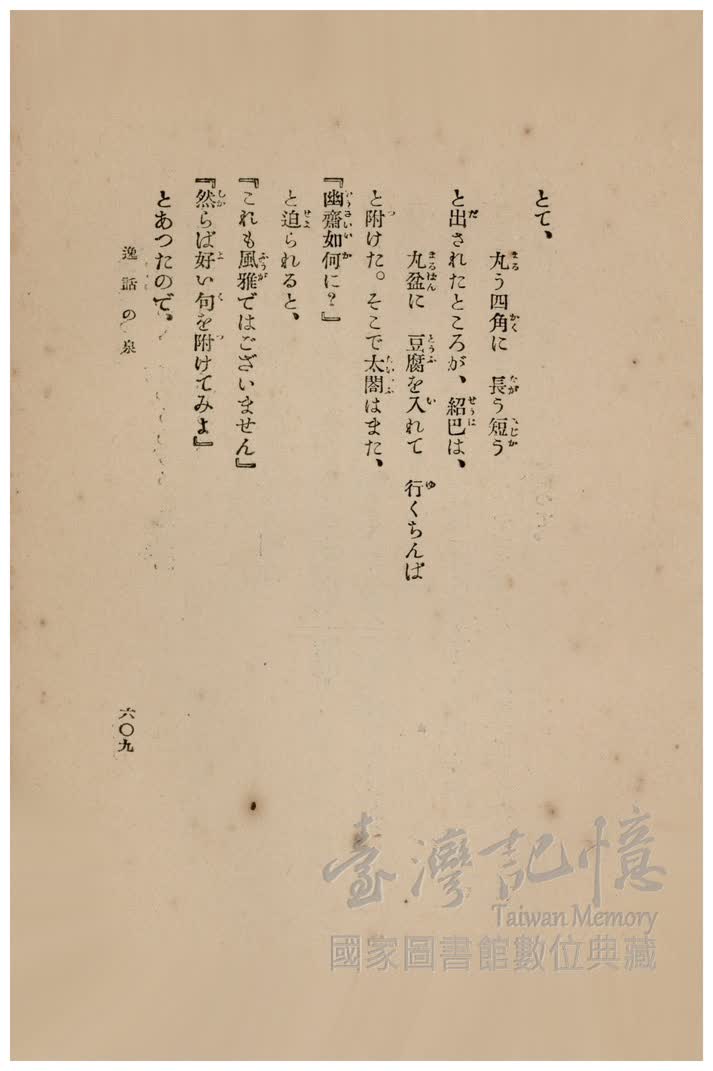 とて、
丸う四角に　長う短う
と出されたところが、紹巴は、
丸盆に　豆腐を入れて　行くちんば
と附けた。そこで太閤はまた、
『幽齋如何に？』
と迫られると、
『これも風雅ではございません』
『然らば好い句を附けてみよ』
とあつたので、
逸話の泉
六〇九
臺灣記憶
Taiwan Memory
國家圖書館數位典藏